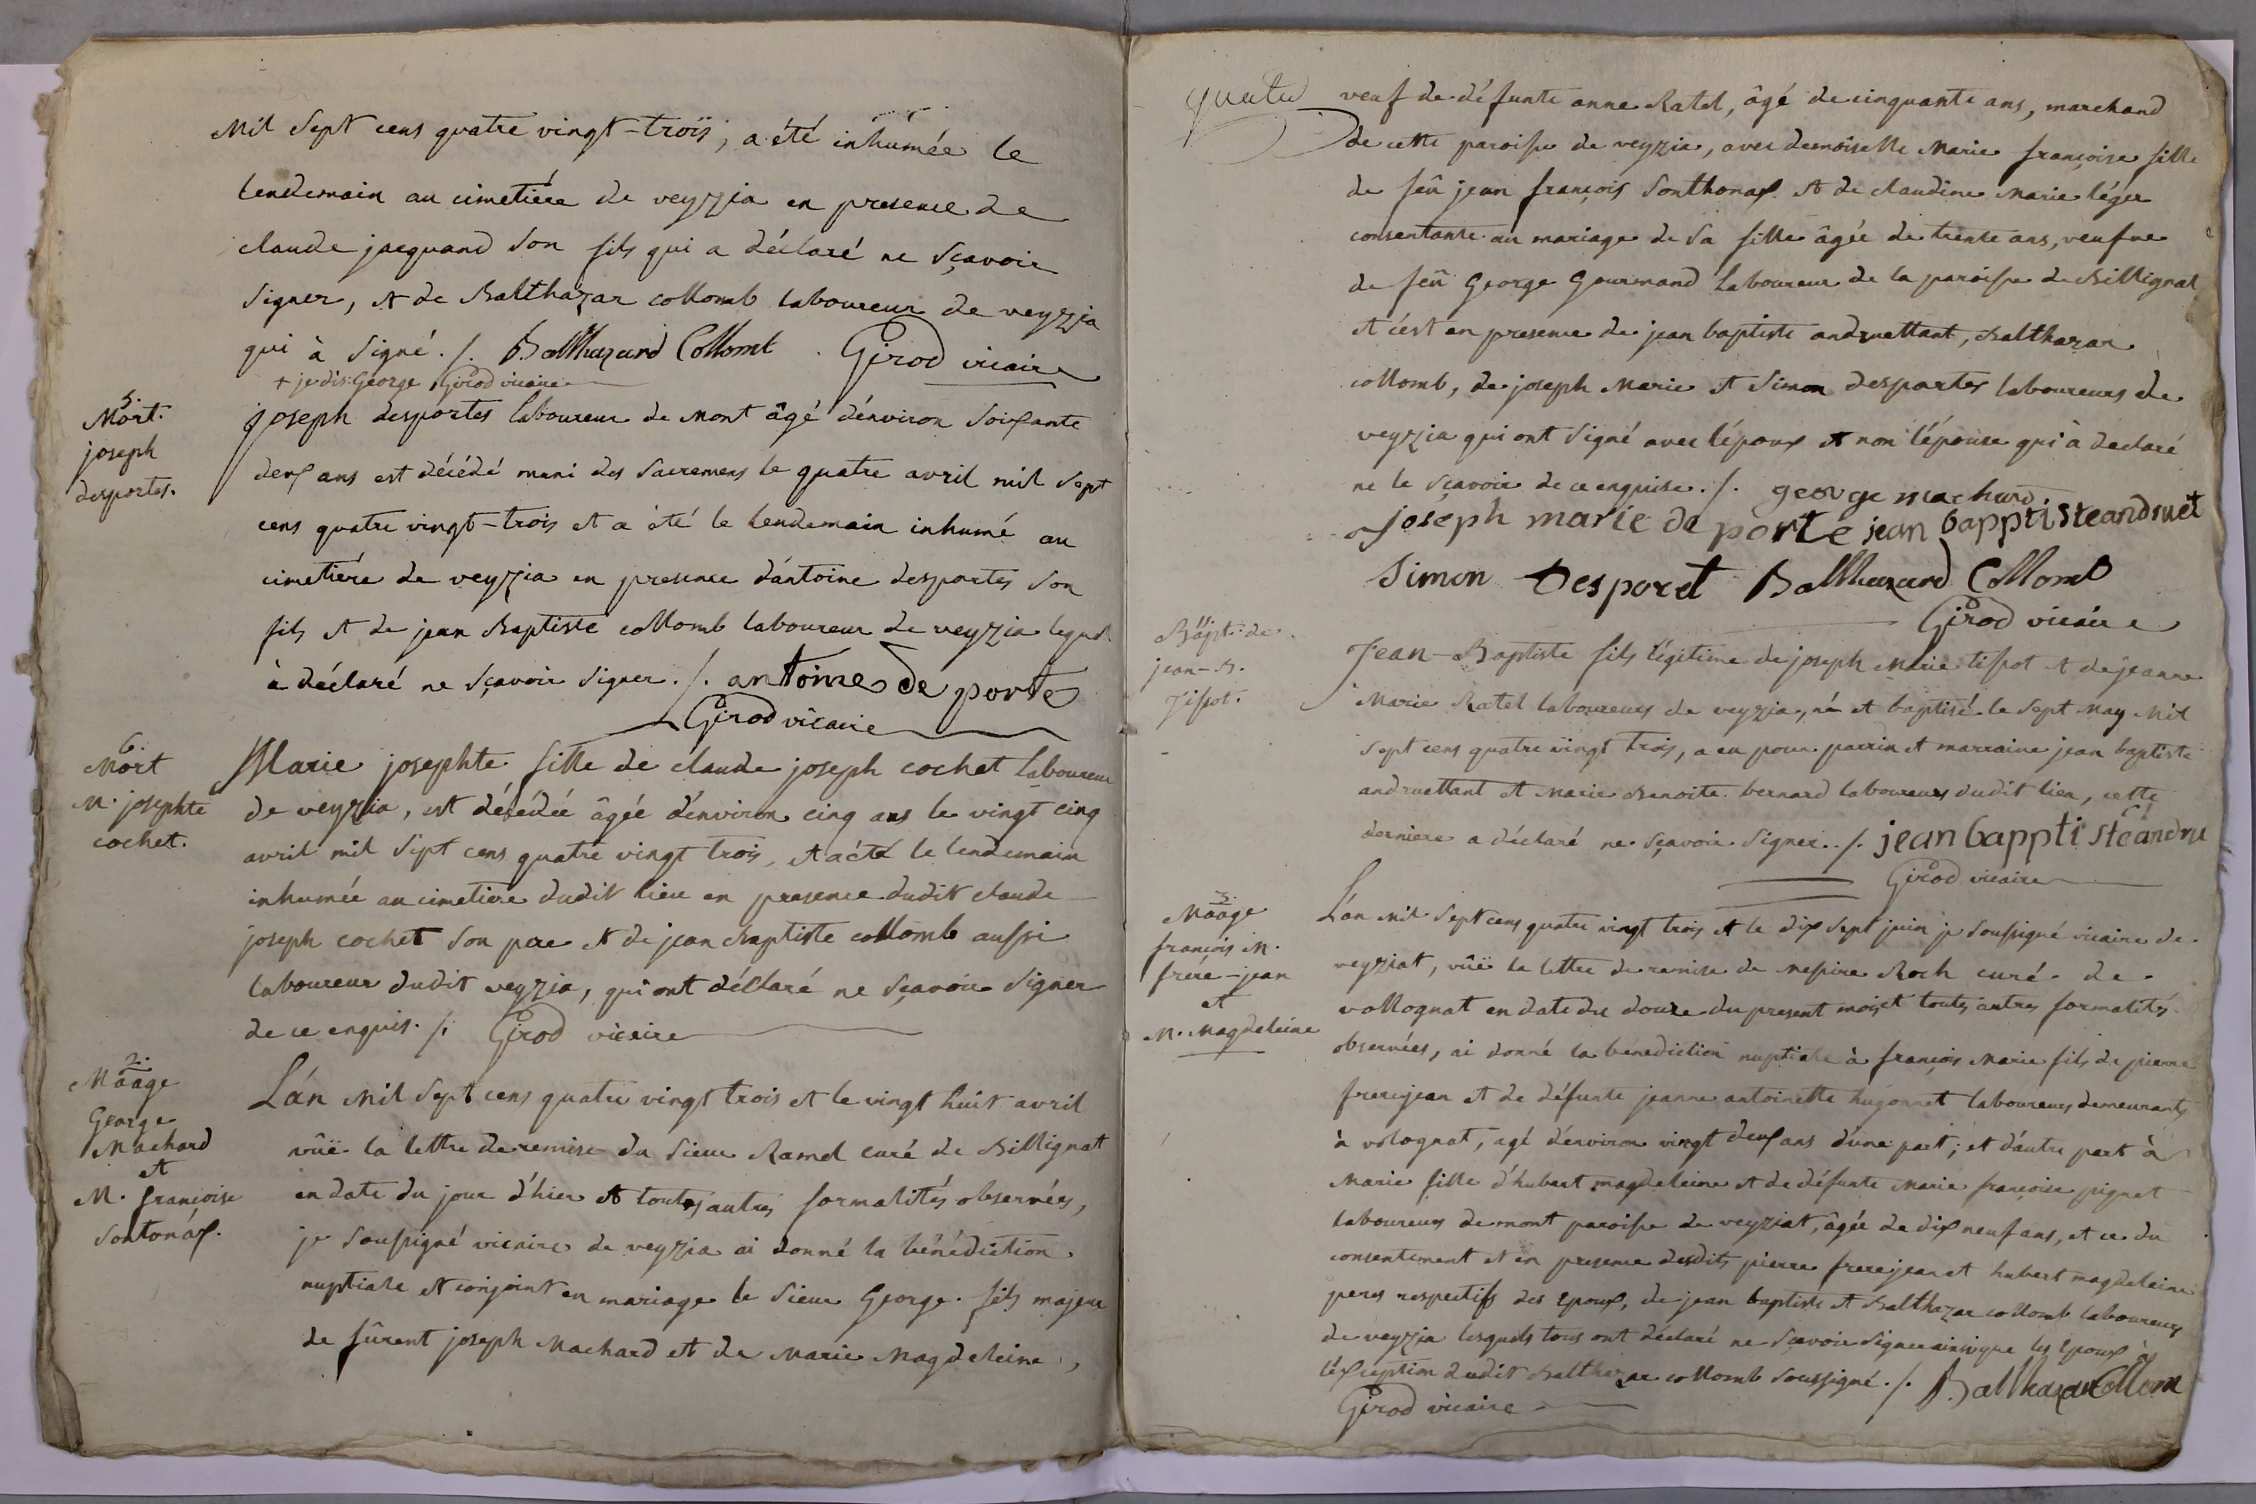 Mil Sept cens quatre vingt-trois, a été inhumée le
lendemain au cimetiére de veyzia en presence de
claude jacquand son fils qui a déclaré ne sçavoir
signer, et de Balthazar collomb laboureur de veyzia
qui à signé ./. Balthazard Collomb . Girod vicaire
+ je dis George Girod vicaire
5.
Mort.
joseph
desportes.
joseph desportes laboureur de mont âgé d'énviron soixante
deux ans est décédé muni des sacremens le quatre avril mil sept
cens quatre vingt-trois et a été le lendemain inhumé au
cimetiére de veyzia en presence d'antoine desportes son
fils et de jean Baptiste collomb laboureur de veyzia lequel
à déclaré ne sçavoir signer ./. antoine de porte
Girod vicaire
6.
Mort
M. josephte
cochet.
Marie josephte fille de claude joseph cochet laboureur
de veyzia, est décédée âgée d'énviron cinq ans le vingt cinq
avril mil sept cens quatre vingt trois, et a été le lendemain
inhumée au cimetiere dudit lieu en presence dudit claude
joseph cochet son pere et de jean Baptiste collomb aussi
laboureur dudit veyzia, qui ont déclaré ne sçavoir signer
de ce enquis ./. Girod vicaire
2.
Maage
George
Machard
et
M. françoise
Sontonax.
L'an Mil Sept cens quatre vingt trois et le vingt huit avril
vûë la lettre de remise du sieur Ramel curé de Billignatt
en date du jour d'hier et toutes autres formalités observées,
je soussigné vicaire de veyzia ai donné la bénédiction
nuptiale et conjoint en mariage le sieur George fils majeur
de fûrent joseph Machard et de Marie Magdeleine,
veuf de défunte anne Ratel, âgé de cinquante ans, marchand
de cette paroisse de veyzia, avec demoiselle Marie françoise fille
de feû jean françois Sonthonax et de claudine Marie léger
consentante au mariage de sa fille âgée de trente ans, veufve
de feû George Gourmand laboureur de la paroisse de Billignat
et c'est en presence de jean baptiste andruettant, Balthazar
collomb, de joseph Marie et Simon desportes laboureurs de
veyzia qui ont signé avec l'époux et non l'épouse qui à declaré
ne le sçavoir de ce enquise ./. george machard
joseph marie de porte jean bapptiste andruet
Simon Desporet Balthazard Collomb
Girod vicaire
11
Bapt. de
jean-B.
Tissot.
Jean-Baptiste fils légitime de joseph Marie tissot et de jeanne
Marie Ratel laboureurs de veyzia, né et baptisé le sept May Mil
sept cens quatre vingt trois, a eu pour parrin et marraine jean baptiste
andruettant et Marie Benoite bernard laboureurs dudit lieu, cette
derniere a déclaré ne sçavoir signer ./. jean bapptiste andru
Girod vicaire
3.
Maage
françois M.
frere-jean
et
M. Magdeleine
L'an Mil Sept cens quatre vingt trois et le dix sept juin je soussigné vicaire de
veyziat, vûë la lettre de remise de Messire Roch curé de
vollognat en date du douze du present mois et toutes autres formalités
observées, ai donné la bénédiction nuptiale à françois Marie fils de pierre
frerejean et de défunte jeanne antoinette hugonnet laboureurs demeurants
à volognat, agé d'énviron vingt deux ans d'une part; et d'autre part à
Marie fille d'hubert magdeleine et de défunte Marie françoise pignet
laboureurs de mont paroisse de veyziat, âgée de dix neuf ans, et ce du
consentement et en presence desdits pierre frerejean et hubert magdeleine
peres respectifs des Epoux, de jean baptiste et Balthazar collomb laboureurs
de veyzia lesquels tous ont déclaré ne sçavoir signer ainsi que les Epoux à
l'éxception dudit Balthazar collomb soussigné ./. Balthazar Collom
Girod vicaire